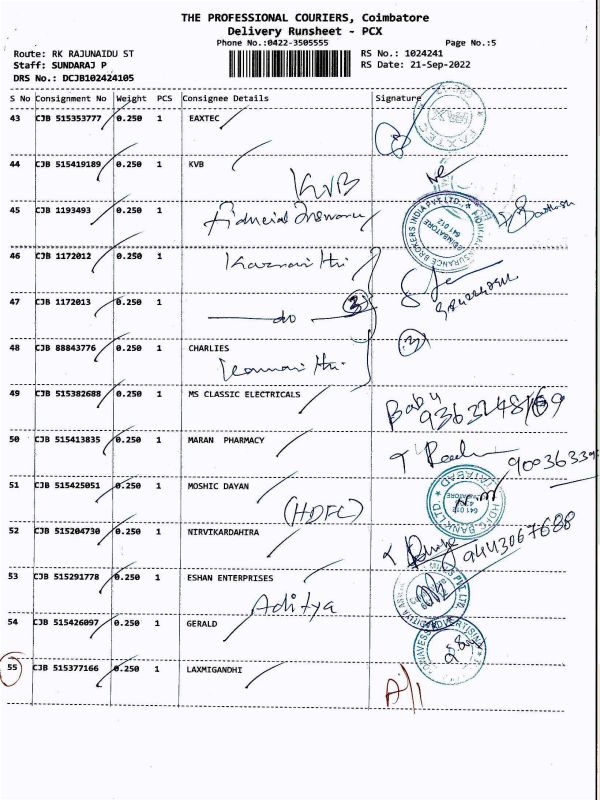 THE PROFESSIONAL COURIERS, Coimbatore
Delivery Runsheet - PCX
Phone No.:0422-3505555 Page No.:5
Route: RK RAJUNAIDU ST RS No.: 1024241
Staff: SUNDARAJ P RS Date: 21-Sep-2022
DRS No.: DCJB102424105
S No Consignment No Weight PCS Consignee Details Signature
43 CJB 515353777 0.250 1 EAXTEC
44 CJB 515419189 0.250 1 KVB
KVB
45 CJB 1193493 0.250 1 Fiducial Insurance
46 CJB 1172012 0.250 1
47 CJB 1172013 0.250 1 do 3
48 CJB 88843776 0.250 1 CHARLIES 3
49 CJB 515382688 0.250 1 MS CLASSIC ELECTRICALS Babu
50 CJB 515413835 0.250 1 MARAN PHARMACY
51 CJB 515425051 0.250 1 MOSHIC DAYAN
(HDFC) HDFC BANK LTD
52 CJB 515204730 0.250 1 NIRVIKARDAHIRA 9443067688
53 CJB 515291778 0.250 1 ESHAN ENTERPRISES
Aditya
54 CJB 515426097 0.250 1 GERALD
55 CJB 515377166 0.250 1 LAXMIGANDHI